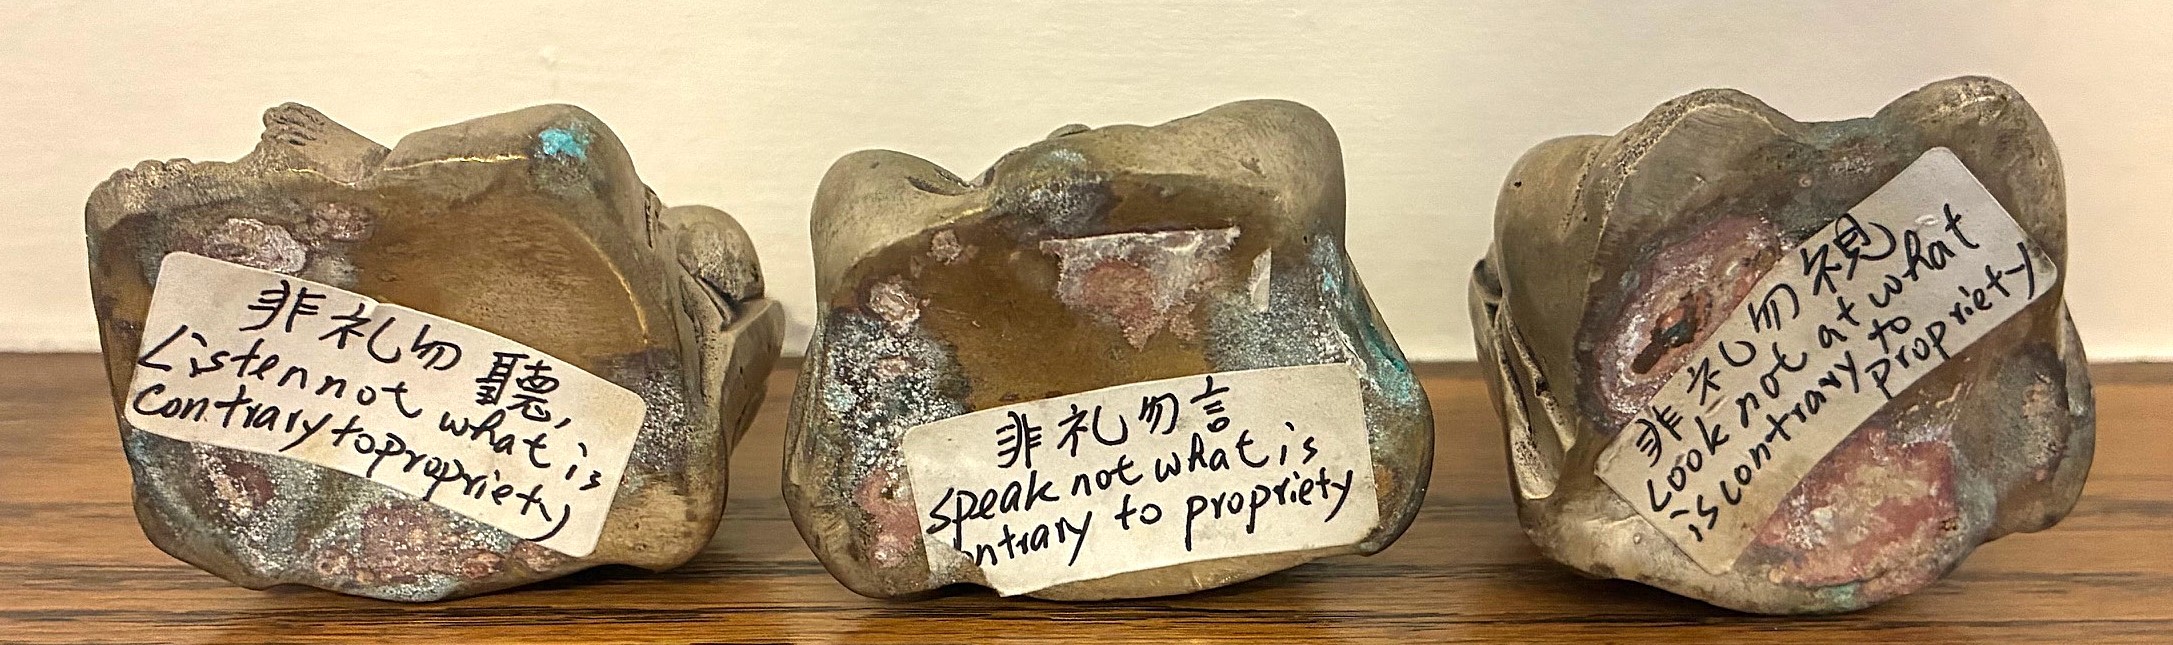 非礼勿聽,
Listen not what is
contrary to propriety
非礼勿言
speak not what is
ontrary to propriety
非礼勿視
Look not at what
is contrary to
propriety